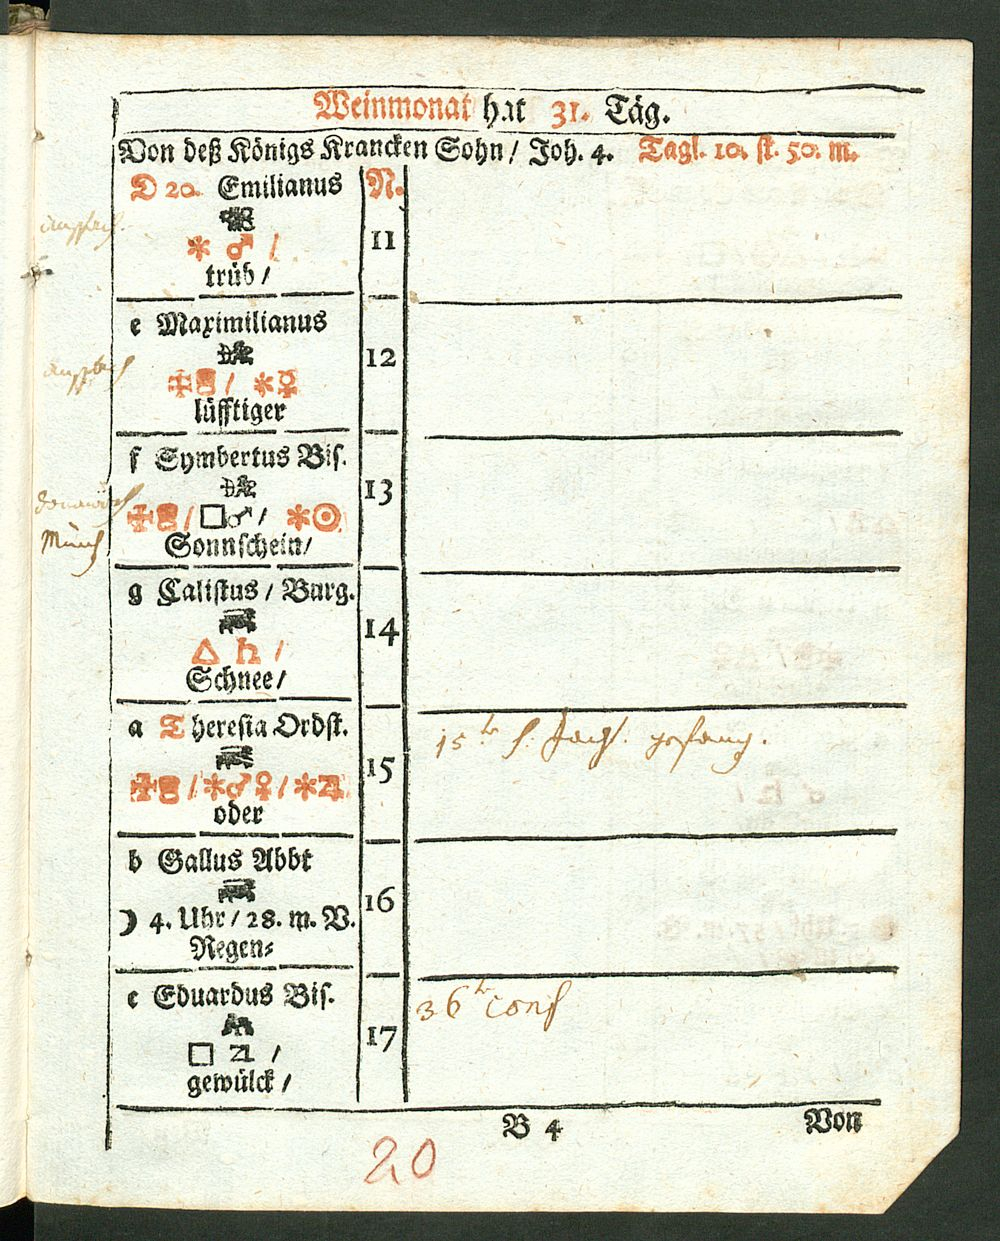 Weinmonat hat 31. Täg.
Von deß Königs Krancken Sohn / Joh. 4. Tagl. 10. st. 50. m.
D 20. Emilianus N.
11
✱ ♂ /
trüb /
e Maximilianus
12
/ ✱☿
lüfftiger
f Symbertus Bis.
13
/ □♂ / ✱☉
Sonnschein /
Münch
g Calistus / Burg.
14
△ ♄ /
Schnee /
a Theresia Ordst.
15 15
/ ✱♂♀ / ✱♃
oder
b Gallus Abbt
16
☽ 4. Uhr / 28. m. V.
Regen⸗
c Eduardus Bis. 36 conf
17
□ ♃ /
gewülck /
B 4 Von
20